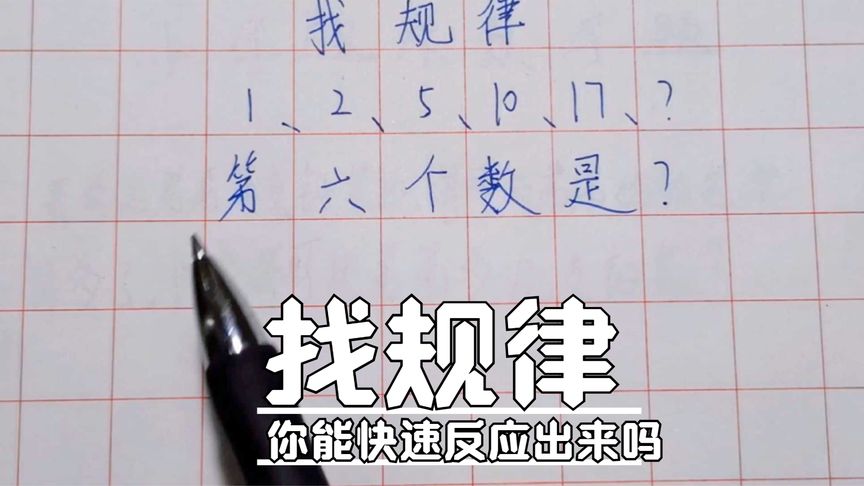 找规律
1、2、5、10、17、?
第六个数是?
找规律
你能快速反应出来吗